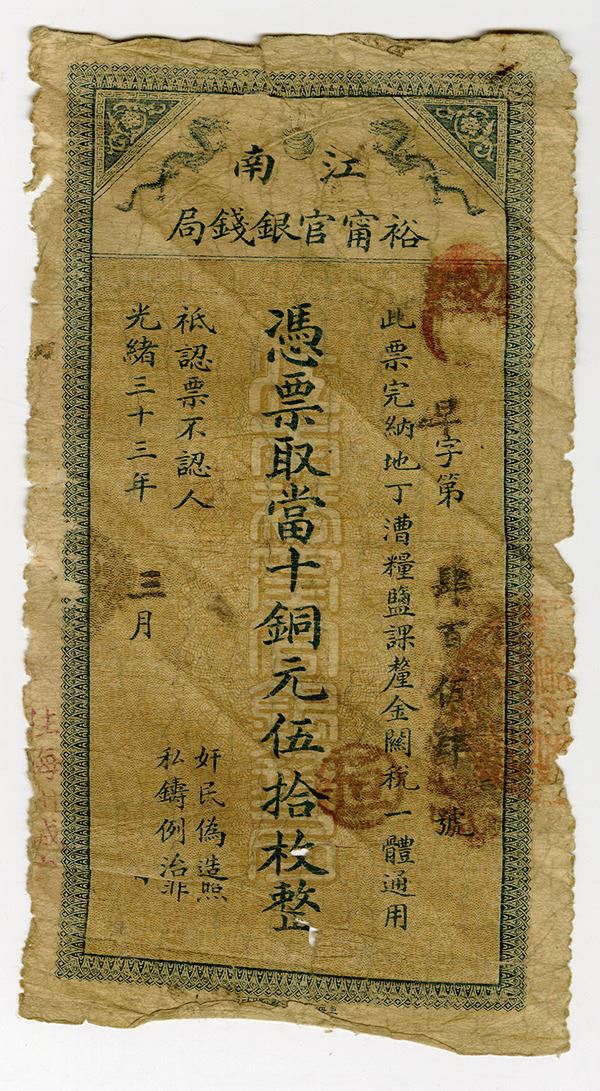 江南
裕甯官銀錢局
字第肆百伍肆號
此票完納地丁漕糧鹽課釐金關稅一體通用
憑票取當十銅元伍拾枚整
祗認票不認人
光緒三十三年三月
奸民偽造照
私鑄例治罪